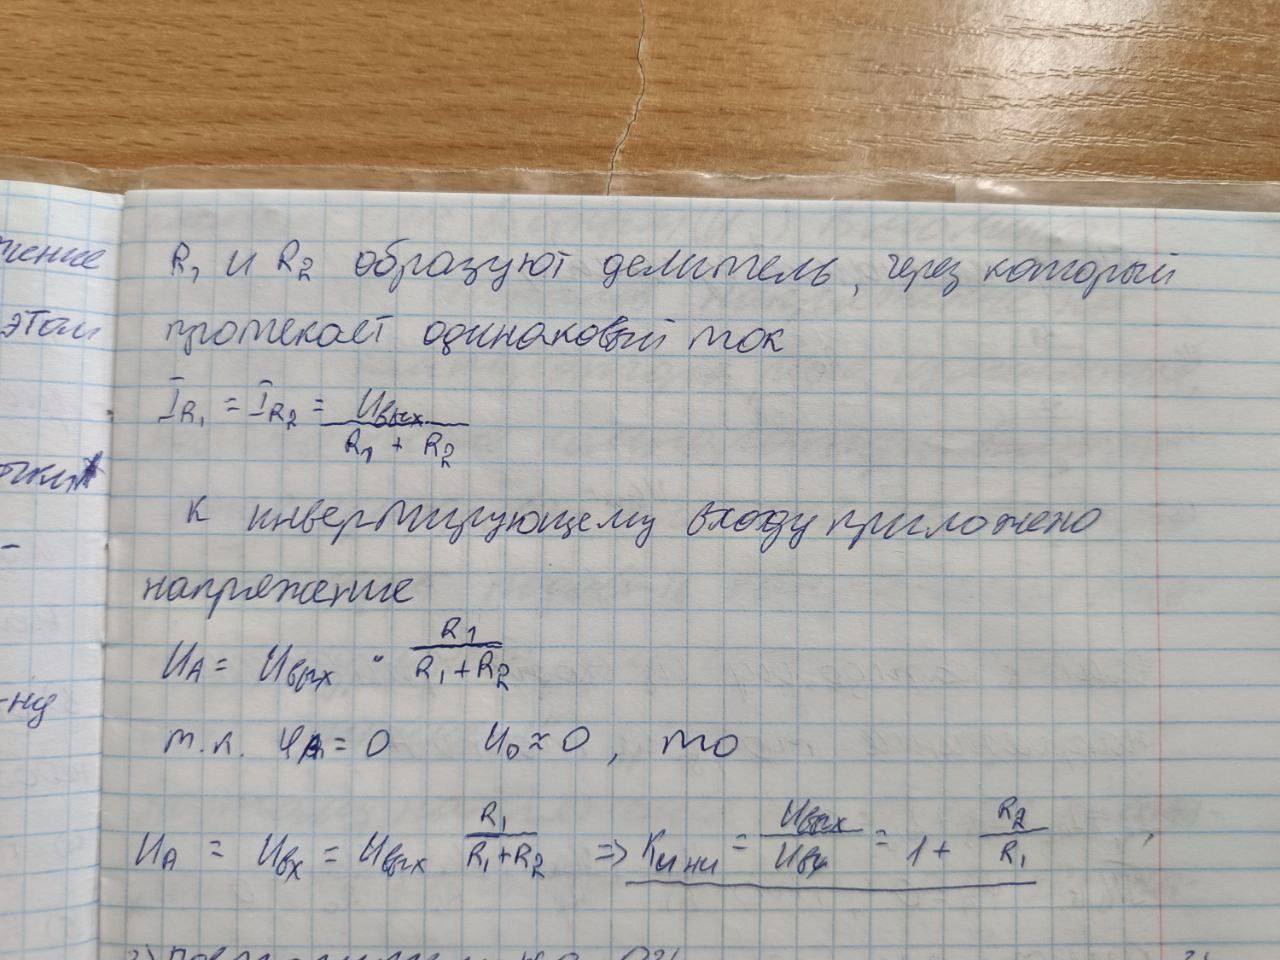 жение
этом
R₁ и R₂ образуют делитель, через который
протекает одинаковый ток
I_R₁ = I_R₂ = Uвых / (R₁ + R₂)
К инвертирующему входу приложено
напряжение
U_A = Uвых · R₁ / (R₁ + R₂)
т.к. φ_A = 0 U₀ ≈ 0, то
U_A = Uвх = Uвых R₁ / (R₁ + R₂) => Kи ни = Uвых / Uвх = 1 + R₂ / R₁